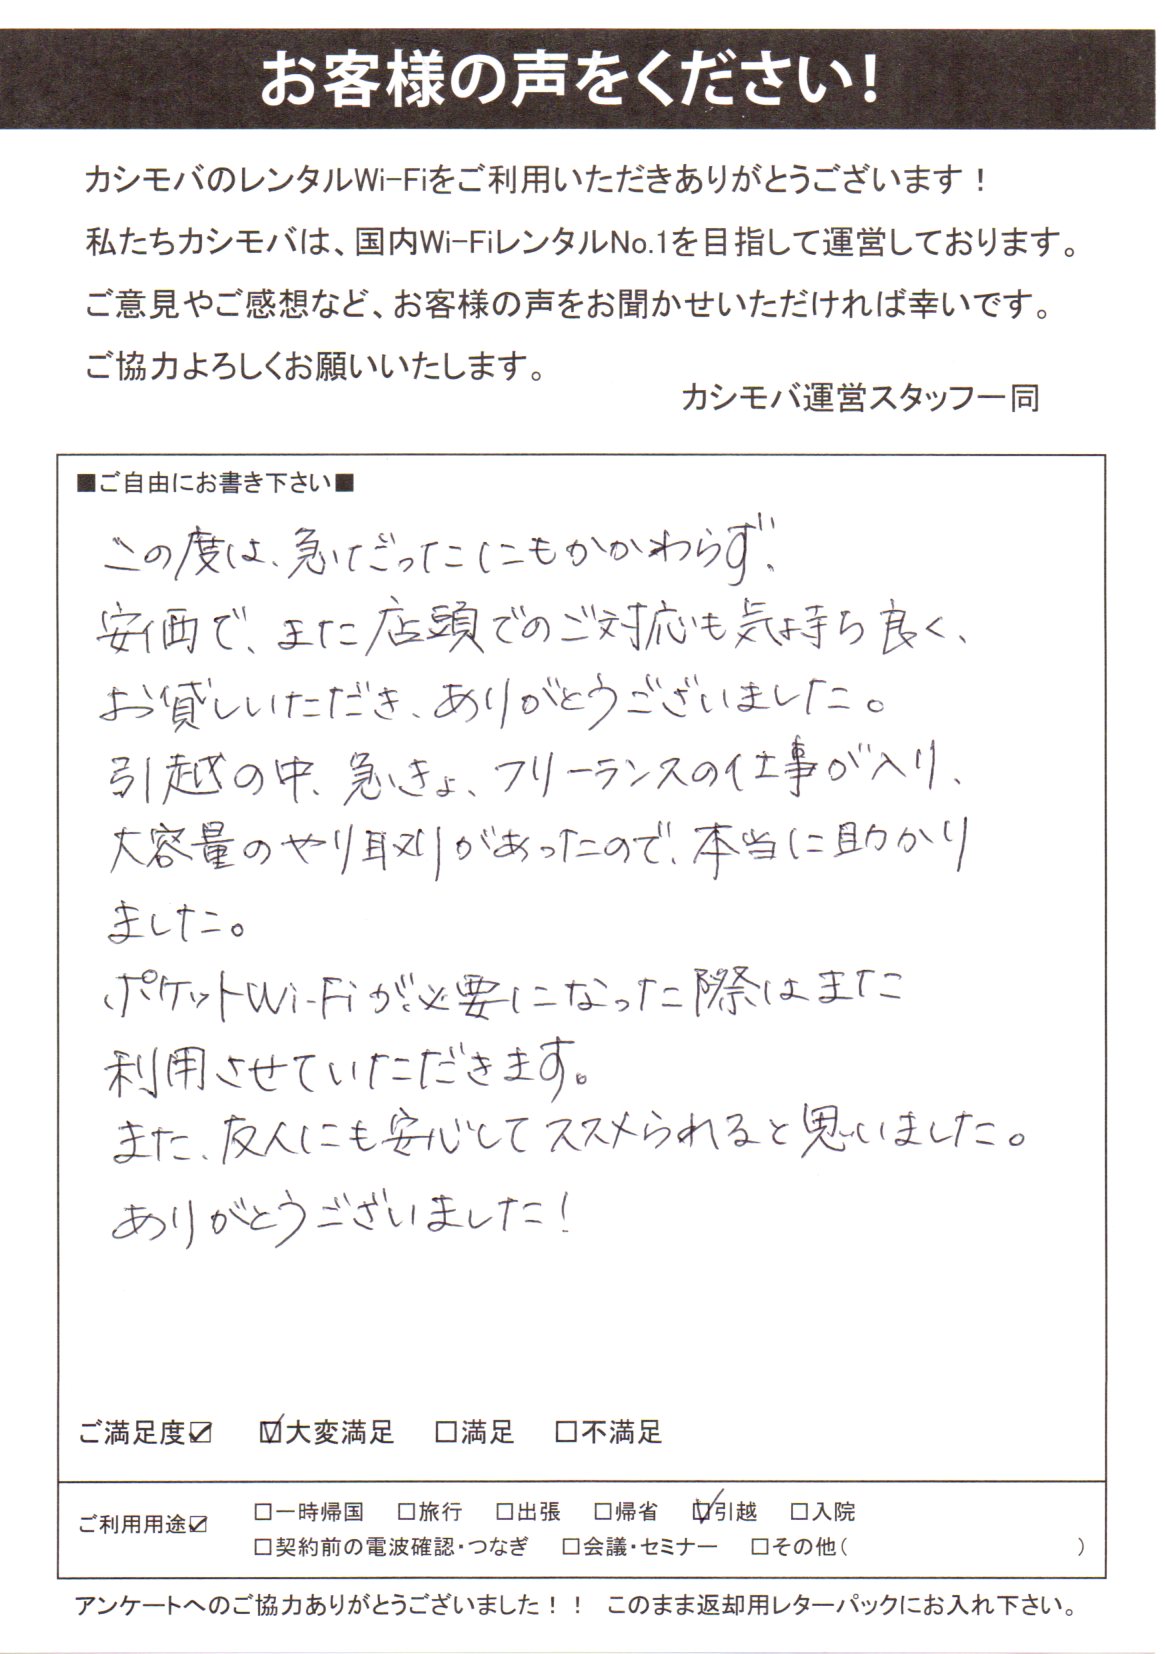 お客様の声をください！
カシモバのレンタルWi-Fiをご利用いただきありがとうございます！
私たちカシモバは、国内Wi-FiレンタルNo.1を目指して運営しております。
ご意見やご感想など、お客様の声をお聞かせいただければ幸いです。
ご協力よろしくお願いいたします。
カシモバ運営スタッフ一同
■ご自由にお書き下さい■
この度は、急だったにもかかわらず、
安価で、また店頭でのご対応も気持ち良く、
お貸しいただき、ありがとうございました。
引越の中、急きょ、フリーランスの仕事が入り、
大容量のやり取りがあったので、本当に助かり
ました。
ポケットWi-Fiが必要になった際はまた
利用させていただきます。
また、友人にも安心してススメられると思いました。
ありがとうございました！
ご満足度☑ ☑大変満足 □満足 □不満足
ご利用用途☑ □一時帰国 □旅行 □出張 □帰省 ☑引越 □入院
□契約前の電波確認・つなぎ □会議・セミナー □その他（ ）
アンケートへのご協力ありがとうございました！！ このまま返却用レターパックにお入れ下さい。